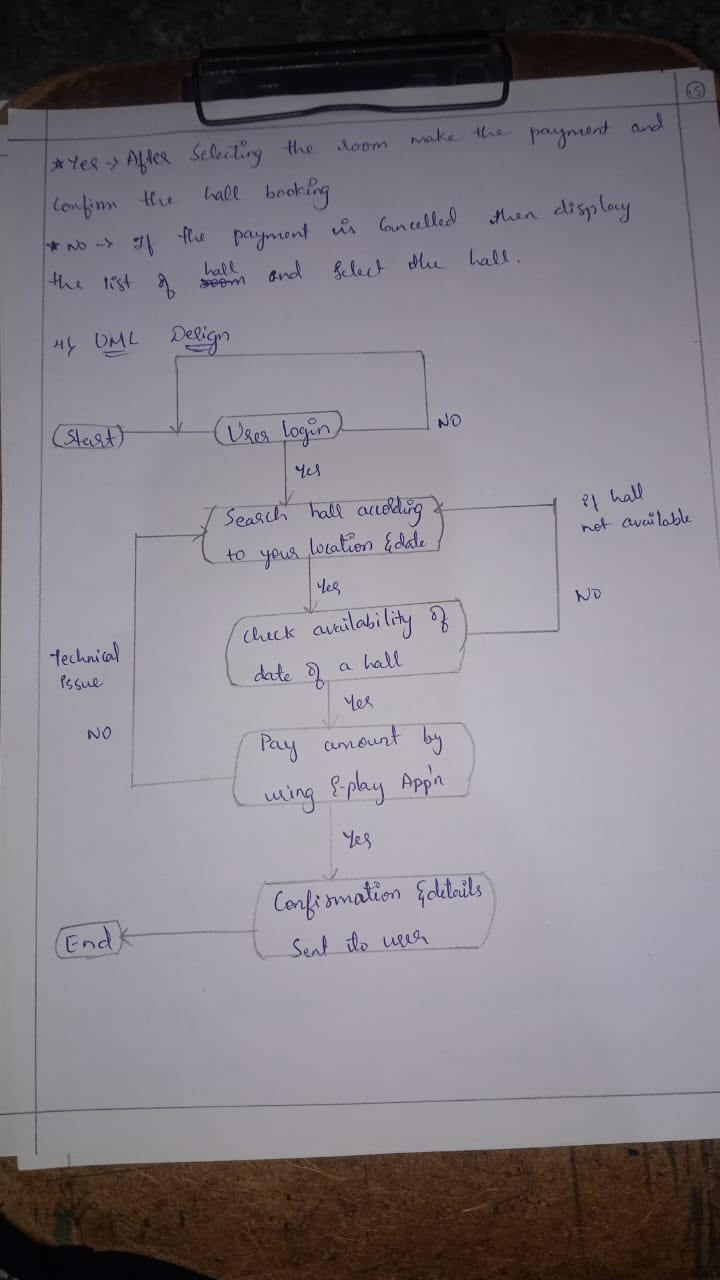 65
* Yes → After Selecting the room make the payment and
Confirm the hall booking
* No → If the payment is Cancelled then display
the list of hall and Select the hall.
4) UML Design
Start
User login
NO
Yes
Search hall according
to your location & date
if hall
not available
Yes
NO
Check availability of
date of a hall
technical
issue
Yes
NO
Pay amount by
using E-play App'n
Yes
Confirmation & details
Sent to user
End